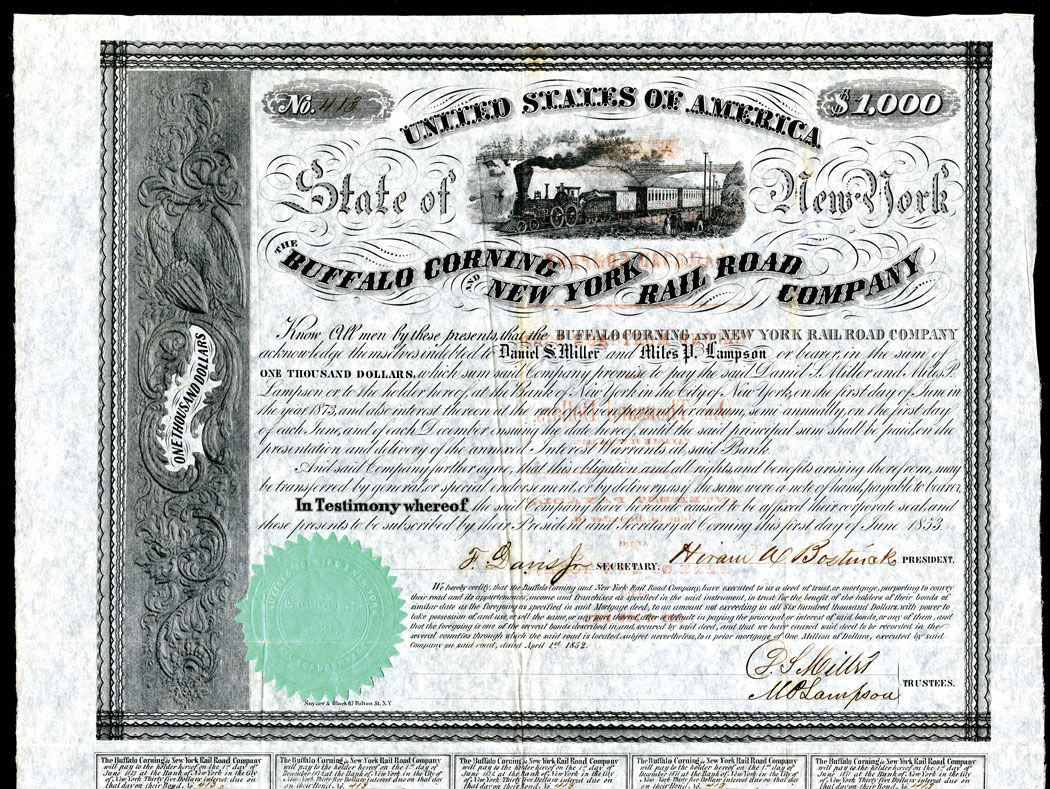 No. 413
$1,000
UNITED STATES OF AMERICA
State of New York
THE BUFFALO CORNING AND NEW YORK RAIL ROAD COMPANY
Know All men by these presents, that the BUFFALO CORNING AND NEW YORK RAIL ROAD COMPANY
acknowledge themselves indebted to Daniel S. Miller and Miles P. Lampson or bearer, in the sum of
ONE THOUSAND DOLLARS, which sum said Company promise to pay the said Daniel S. Miller and Miles P.
Lampson or to the holder hereof, at the Bank of New York in the City of New York, on the first day of June in
the year 1873, and also interest thereon at the rate of seven per centum per annum, semi annually, on the first day
of each June, and of each December ensuing the date hereof, until the said principal sum shall be paid, on the
presentation and delivery of the annexed Interest Warrants at said Bank.
And said Company further agree, that this obligation and all rights and benefits arising therefrom, may
be transferred by general or special endorsement, or by delivery, as if the same were a note of hand, payable to bearer.
In Testimony whereof, the said Company have hereunto caused to be affixed their corporate seal, and
these presents to be subscribed by their President and Secretary at Corning this first day of June 1853
F. Davis Jr SECRETARY. Hiram W Bostwick PRESIDENT.
We hereby certify, that the Buffalo Corning and New York Rail Road Company, have executed to us a deed of trust, or mortgage, purporting to convey
their road and its appurtenances, income and franchises as specified in the said instrument, in trust for the benefit of the holders of their bonds of
similar date as the foregoing as specified in said Mortgage deed, to an amount not exceeding in all Six Hundred thousand Dollars, with power to
take possession of, and use, or sell the same, or any part thereof, after a default in paying the principal or interest of said bonds, or any of them, and
that the foregoing is one of the several bonds described in, and secured by said deed, and that we have caused said deed to be recorded in the
several counties through which the said road is located, subject nevertheless, to a prior mortgage of One Million of Dollars, executed by said
Company on said road, dated April 1st 1852.
D S Miller
M P Lampson TRUSTEES.
ONE THOUSAND DOLLARS
Snyder & Black 87 Fulton St. N.Y
The Buffalo Corning & New York Rail Road Company
will pay to the holder hereof on the 1st day of
June 1873 at the Bank of New York in the City
of New York Thirty five Dollars interest due on
that day on their Bond, No. 413
The Buffalo Corning & New York Rail Road Company
will pay to the holder hereof on the 1st day of
December 1872 at the Bank of New York in the City of
New York Thirty five Dollars interest due on that day
on their Bond, No. 413
The Buffalo Corning & New York Rail Road Company
will pay to the holder hereof on the 1st day of
June 1872 at the Bank of New York in the City
of New York Thirty five Dollars interest due on
that day on their Bond, No. 413
The Buffalo Corning & New York Rail Road Company
will pay to the holder hereof on the 1st day of
December 1871 at the Bank of New York in the City of
New York Thirty five Dollars interest due on that day
on their Bond, No. 413
The Buffalo Corning & New York Rail Road Company
will pay to the holder hereof on the 1st day of
June 1871 at the Bank of New York in the City
of New York Thirty five Dollars interest due on
that day on their Bond, No. 413